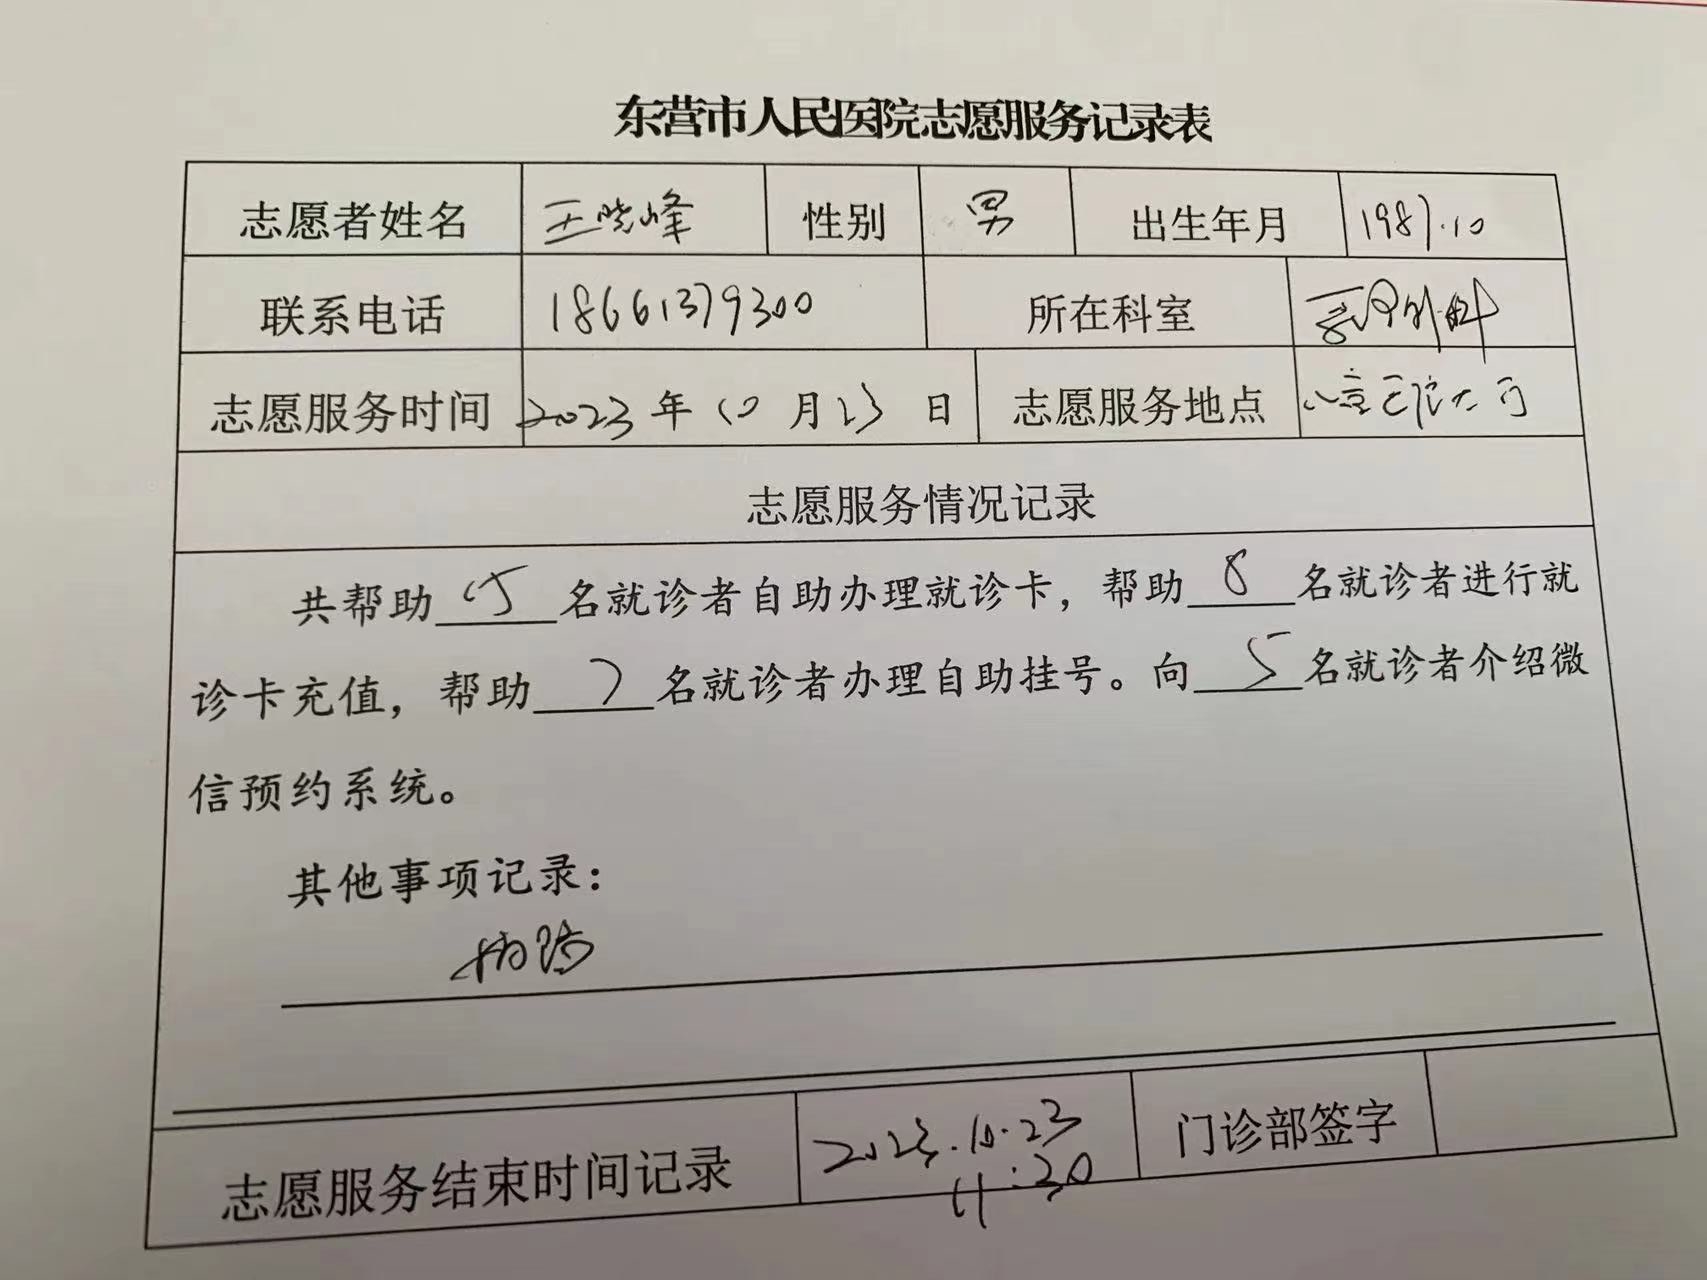 东营市人民医院志愿服务记录表
志愿者姓名 王晓峰 性别 男 出生年月 1987.10
联系电话 18661379300 所在科室
志愿服务时间 2023年10月23日 志愿服务地点
志愿服务情况记录
共帮助15名就诊者自助办理就诊卡，帮助8名就诊者进行就
诊卡充值，帮助7名就诊者办理自助挂号。向5名就诊者介绍微
信预约系统。
其他事项记录：
志愿服务结束时间记录 2023.10.23 门诊部签字
11:30